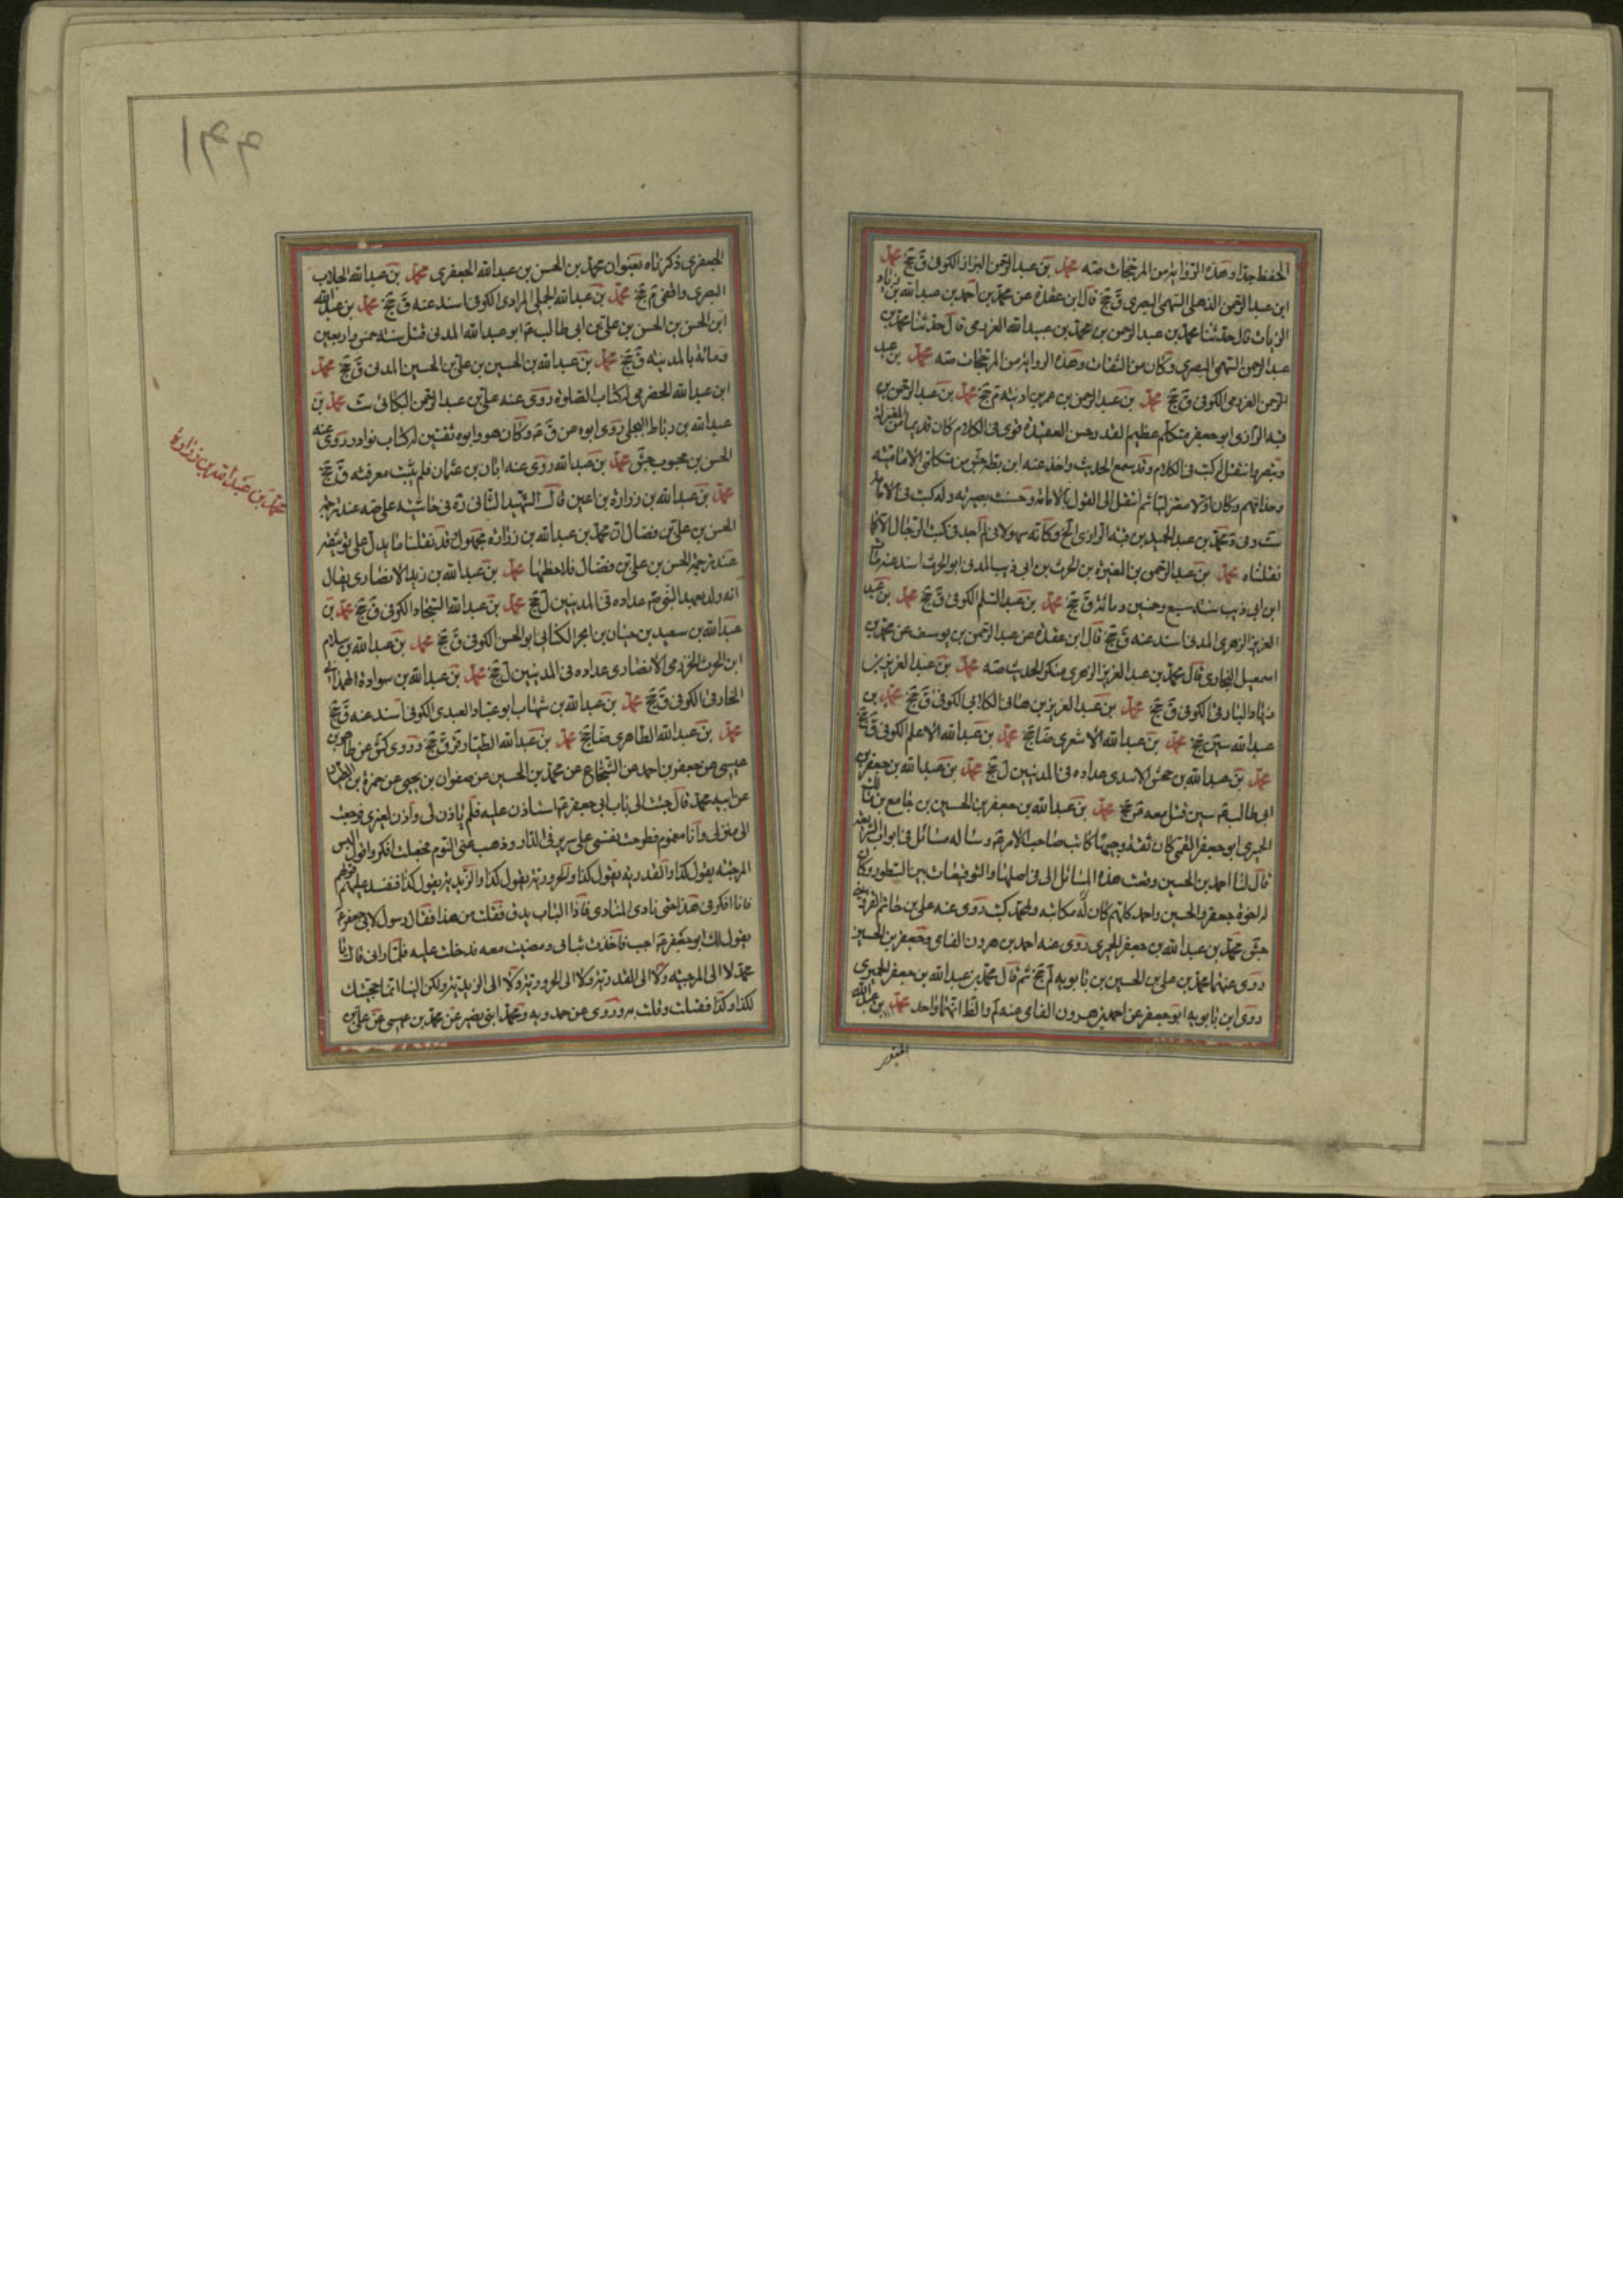 الحفظ جدا وهذه الرواية من المرجحات صه محمد بن عبد الرحمن البزاز الكوفى ق جخ محمد
ابن عبد الرحمن الذهلى السهمى البصرى ق جخ قال ابن عقدة عن محمد بن احمد بن عبد الله بن زياد
الزيات قال حدثنا محمد بن عبد الرحمن بن محمد بن عبيد الله العرزمى قال حدثنا محمد بن
عبد الرحمن السهمى البصرى وكان من الثقات وهذه الرواية من المرجحات صه محمد بن عبد
الرحمن العرزمى الكوفى ق جخ محمد بن عبد الرحمن بن عمر بن اذينة م جخ محمد بن عبد الرحمن بن
قبه الرازى ابو جعفر متكلم عظيم القدر حسن العقيدة قوى فى الكلام كان قديما من المعتزلة
وتبصر وانتقل له كتب فى الكلام وقد سمع الحديث واخذ عنه ابن بطة جش من متكلمى الامامية
وحذاقهم وكان اولا معتزليا ثم انتقل الى القول بالامامة وحسنت بصيرته وله كتب فى الامامة
ست وفى د محمد بن عبد الحميد بن قبه الرازى الخ وكانه سهو لانى لم اجد فى كتب الرجال الا كما
نقلناه محمد بن عبد الرحمن بن المغيرة بن الحرث بن ابى ذيب المدنى ابو الحرث اسند عنه مات
ابن ابى ذيب سنة سبع وخمسين ومائة ق جخ محمد بن عبد السلم الكوفى ق جخ محمد بن عبد
العزيز الزهرى المدنى اسند عنه ق جخ قال ابن عقدة عن عبد الرحمن بن يوسف عن محمد بن
اسمعيل البخارى قال محمد بن عبد العزيز الزهرى منكر الحديث صه محمد بن عبد العزيز بن
عبد الله سين جخ محمد بن عبد الله الاشعرى ضا جخ محمد بن عبد الله الاعلم الكوفى ق جخ
محمد بن عبد الله بن جحش الاسدى عداده فى المدنيين ل جخ محمد بن عبد الله بن جعفر بن
ابى طالب ع سين قتل معه جخ محمد بن عبد الله بن جعفر بن الحسين بن جامع بن مالك
الحميرى ابو جعفر القمى كان ثقة وجيها كاتب صاحب الامر ع وساله مسائل فى ابواب الشريعة
قال لنا احمد بن الحسين وقعت هذه المسائل الى فى اصلها والتوقيعات بين السطور وكان
له اخوة جعفر والحسين واحمد كلهم كان له مكاتبة ولمحمد كتب روى عنه على بن حاتم القزوينى
جش محمد بن عبد الله بن جعفر الحميرى روى عنه احمد بن هرون الفامى وجعفر بن الحسين
روى عنهما محمد بن على بن الحسين بن بابويه لم جخ ثم قال محمد بن عبد الله بن جعفر الحميرى
روى ابن بابويه ابو جعفر عن احمد بن هرون الفامى عنه لم والظ انهما واحد محمد بن عبد الله
الجعفرى
١٣٣
الجعفرى ذكرناه بعنوان محمد بن الحسن بن عبد الله الجعفرى محمد بن عبد الله الجلاب
البصرى واقفى م جخ محمد بن عبد الله الجملى المرادى الكوفى اسند عنه ق جخ محمد بن عبد الله
ابن الحسن بن الحسن بن على بن ابى طالب ع ابو عبد الله المدنى قتل سنة خمس واربعين
ومائة بالمدينة ق جخ محمد بن عبد الله بن الحسين بن على بن الحسين المدنى ق جخ محمد
ابن عبد الله الحضرمى له كتاب الصلوة روى عنه على بن عبد الرحمن البكائى ست محمد بن
عبد الله بن رباط البجلى روى ابوه عن ق ع وكان هو وابوه ثقتين له كتاب نوادر روى عنه
الحسن بن محبوب جش محمد بن عبد الله روى عنه ابان بن عثمان فلم يثبت معرفته ق جخ
محمد بن عبد الله بن زرارة بن اعين قال الشهيد الثانى ره فى حاشيته على صه عند ترجمة
الحسن بن على بن فضال ان محمد بن عبد الله بن زرارة مجهول قد نقلنا ما يدل على توثيقه
عند ترجمة الحسن بن على بن فضال فلاحظها محمد بن عبد الله بن زيد الانصارى يقال
انه ولد بعهد النبى ص عداده فى المدنيين ل جخ محمد بن عبد الله السجاد الكوفى ق جخ محمد بن
عبد الله بن سعيد بن حيان بن ابجر الكنانى ابو الحسن الكوفى ق جخ محمد بن عبد الله بن سلام
ابن الحرث الخزرجى الانصارى عداده فى المدنيين ل جخ محمد بن عبد الله بن سوادة الهمدانى
الخارفى الكوفى ق جخ محمد بن عبد الله بن شهاب ابو عباد العبدى الكوفى اسند عنه ق جخ
محمد بن عبد الله الطاهرى ضا جخ محمد بن عبد الله الطيار قر ق جخ وروى كش عن طاهر بن
عيسى عن جعفر بن احمد عن الشجاعى عن محمد بن الحسين عن صفوان بن يحيى عن حمزة بن الطيار
عن ابيه محمد قال جئت الى باب ابى جعفر ع استاذن عليه فلم ياذن لى واذن لغيرى فرجعت
الى منزلى وانا مغموم فطرحت نفسى على سرير فى الدار وذهب عنى النوم فجعلت افكر واقول اليس
المرجئة يقول كذا والقدرية يقول كذا والحرورية يقول كذا والزيدية يقول كذا فنفسد عليهم قولهم
فانا افكر فى هذا حتى نادى المنادى فاذا الباب يدق فقلت من هذا فقال رسول لابى جعفر ع
يقول لك ابو جعفر ع اجب فاخذت ثيابى ومضيت معه فدخلت عليه فلما رانى قال يا
محمد لا الى المرجئة ولا الى القدرية ولا الى الحرورية ولا الى الزيدية ولكن الينا انما حجبتك
لكذا وكذا فقبلت وقلت به وروى عن حمدويه ومحمد ابنى نصير عن محمد بن عيسى عن على بن
محمد بن عبد الله بن زرارة